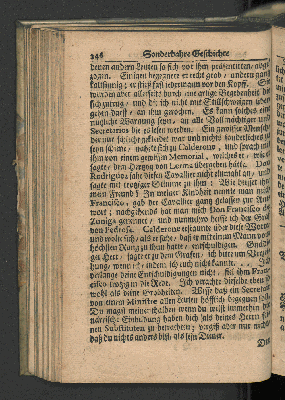 246 Sonderbahre Geschichte
denen andern Leuten so sich vor ihm præsentirten, abge-
zogen. Einigen begegnete er recht grob, andern ganz
kaltsinnig; er stieß fast jedem aus vor den Kopff. Es
wurden aber allerseits durch eine artige Begebenheit
sich zutrug, und die ich nicht mit Stillschweigen über-
gehen darf, an ihm gerochen. Es kann solches eine
nützliche Warnung seyn, an alle Voll machthaber und
Secretarios die es lesen werden. Ein gewisser Mensch,
der nur schlecht gekleidet war und nichts sonderliches zu
seyn schiene, nahete sich zu Calderone, und sprach mit
ihm von einem gewissen Memorial, welches er, wie er
sagte, dem Herzog von Lerma übergeben hätte. Don
Rodrigo sahe diesen Cavallier nicht einmahl an, und
sagte mit trotziger Stimme zu ihm: Wie heisset ihr
mein Freund? In meiner Kindheit nannte man mich
Francisco, gab der Cavallier ganz gelassen zur Ant-
wort; nachgehends hat man mich Don Francisco de
Zuniga genennet, und nunmehro heisse ich der Graf
von Pedrosa. Calderone erstaunte über diese Worte
und wolte sich, als er sahe, daß er mit einem Mann von
höchsten Rang zu thun hatte, entschuldigen. Gnädi-
ger Herr, sagte er zu dem Grafen, ich bitte um Verge-
bung, wenn ich, indem ich euch nicht kannte. . . Ich
verlange deine Entschuldigungen nicht, fiel ihm Fran-
cisco trotzig in die Rede. Ich verachte dieselbe eben so
wohl als deine Grobheiten. Wisse daß ein Secretarius
von einem Ministre allen Leuten höfflich begegnen soll.
Du magst meinethalben wenn du willst immerhin die
närrische Einbildung haben dich als deines Herrn sei-
nen Substituten zu betrachten; vergiß aber nur nicht,
daß du nichts anders bist, als sein Diener.
Der